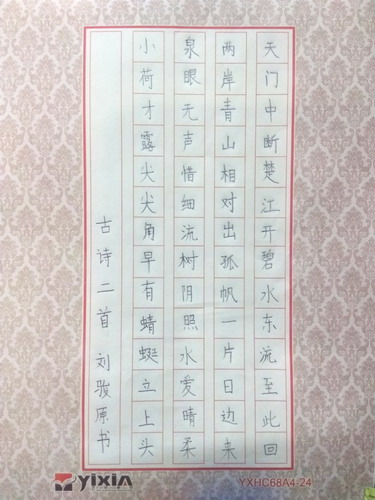 天门中断楚江开碧水东流至此回
两岸青山相对出孤帆一片日边来
泉眼无声惜细流树阴照水爱晴柔
小荷才露尖尖角早有蜻蜓立上头
古诗二首 刘骏原书
YIXIN
YXHC68A4-24